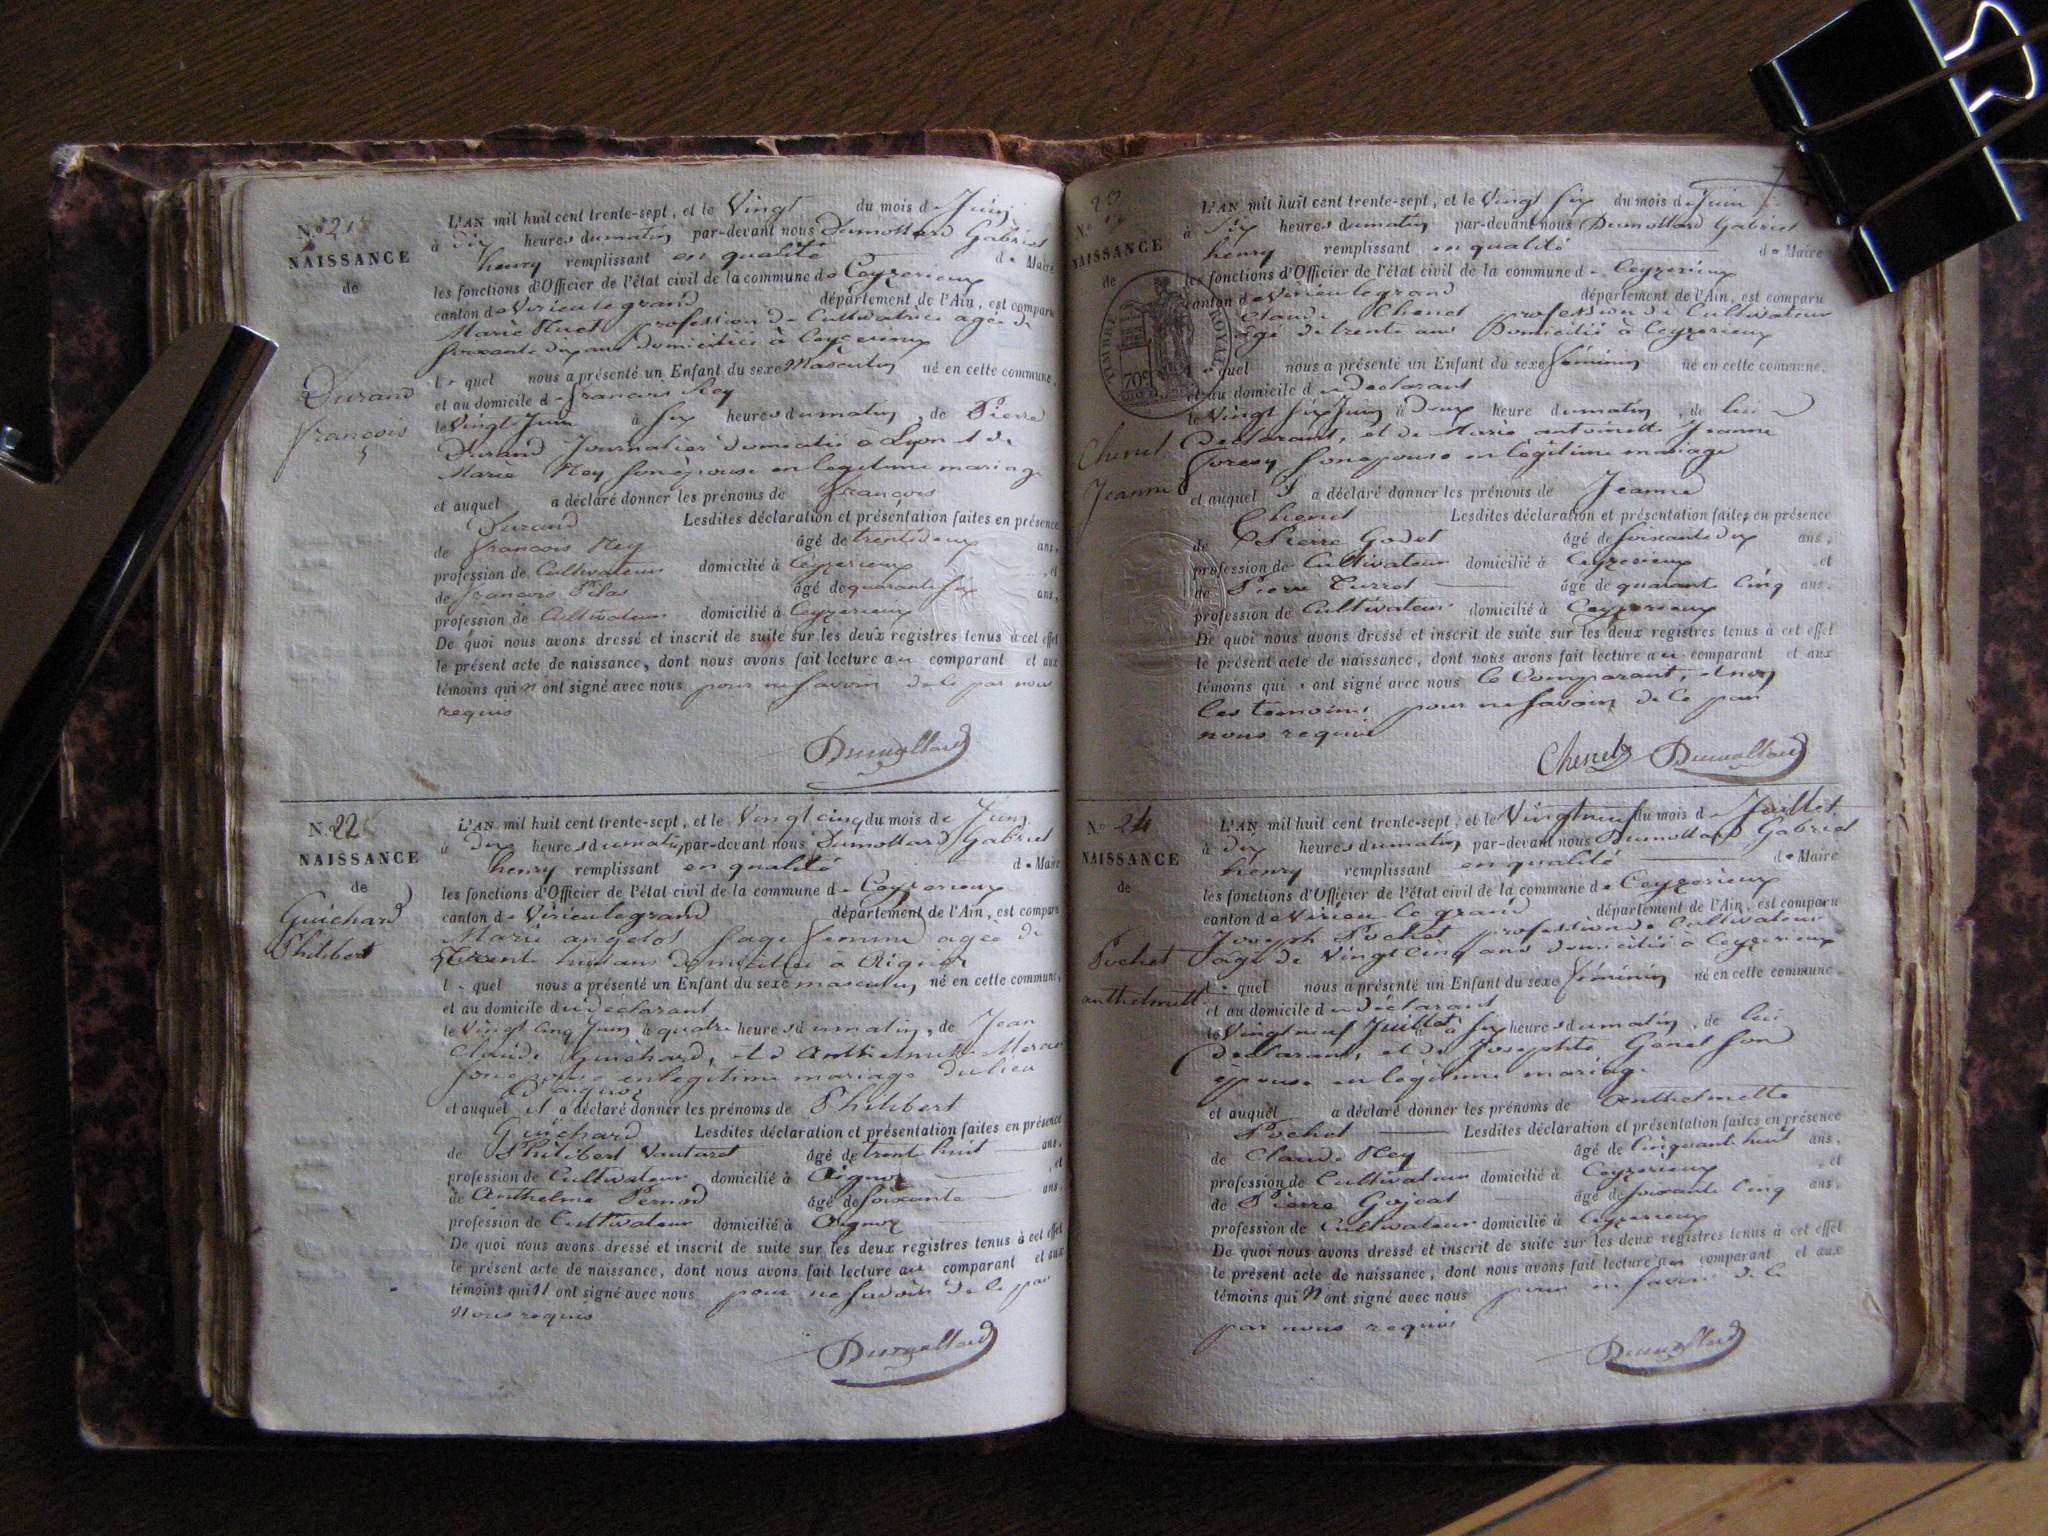 N.o 21
NAISSANCE
de
Durand
François
L'AN mil huit cent trente-sept, et le Vingt du mois de Juin
à dix heures du matin par-devant nous Dumollard Gabriel
henry remplissant en qualité de Maire
les fonctions d'Officier de l'état civil de la commune de Ceyzerieux
canton de Virieu le grand département de l'Ain, est comparu
Marie profession de Cultivatrice agée de
soixante dix ans domiciliée à Ceyzerieux
l quel nous a présenté un Enfant du sexe Masculin né en cette commune,
et au domicile de françois Rey
le Vingt Juin à six heures du matin, de Pierre
Durand Journalier domicilié à Lyon et de
Marie Rey son épouse en légitime mariage
et auquel a déclaré donner les prénoms de françois
Durand Lesdites déclaration et présentation faites en présence
de françois Rey âgé de trente deux ans,
profession de Cultivateur domicilié à Ceyzerieux , et
de françois âgé de quarante six ans,
profession de Cultivateur domicilié à Ceyzerieux
De quoi nous avons dressé et inscrit de suite sur les deux registres tenus à cet effet
le présent acte de naissance, dont nous avons fait lecture au comparant et aux
témoins qui n'ont signé avec nous pour ne savoir de ce par nous
requis
Dumollard
N.o 22
NAISSANCE
de
Guichard
Philibert
L'AN mil huit cent trente-sept, et le Vingt cinq du mois de Juin
à dix heures du matin par-devant nous Dumollard Gabriel
henry remplissant en qualité de Maire
les fonctions d'Officier de l'état civil de la commune de Ceyzerieux
canton de Virieu le grand département de l'Ain, est comparu
Marie angelot Sage femme agée de
ans domiciliée à Aignoz
l quel nous a présenté un Enfant du sexe masculin né en cette commune,
et au domicile du déclarant
le Vingt Cinq Juin à quatre heures du matin, de Jean
Claude Guichard, et d'Anthelmette Mercier
son épouse en légitime mariage du lieu
d'aignoz
et auquel il a déclaré donner les prénoms de Philibert
Guichard Lesdites déclaration et présentation faites en présence
de Philibert Vautaret âgé de trente huit ans,
profession de Cultivateur domicilié à Aignoz , et
de Anthelme âgé de soixante ans,
profession de Cultivateur domicilié à Aignoz
De quoi nous avons dressé et inscrit de suite sur les deux registres tenus à cet effet
le présent acte de naissance, dont nous avons fait lecture au comparant et aux
témoins qui N'ont signé avec nous pour ne savoir de ce par
Nous requis
Dumollard
23
N.o
NAISSANCE
de
TIMBRE ROYAL
70c
Chenet
Jeanne
L'AN mil huit cent trente-sept, et le Vingt six du mois de Juin
à dix heures du matin par-devant nous Dumollard Gabriel
henry remplissant en qualité de Maire
les fonctions d'Officier de l'état civil de la commune de Ceyzerieux
canton de Virieu le grand département de l'Ain, est comparu
Claude Chenet profession de Cultivateur
agé de trente ans Domicilié à Ceyzerieux
l quel nous a présenté un Enfant du sexe féminin né en cette commune,
et au domicile du déclarant
le Vingt six Juin à deux heure du matin, de lui
Déclarant, et de Marie antoinette Jeanne
son épouse en légitime mariage
et auquel il a déclaré donner les prénoms de Jeanne
Chenet Lesdites déclaration et présentation faites en présence
de Pierre Godet âgé de soixante dix ans,
profession de Cultivateur domicilié à Ceyzerieux , et
de Pierre Turrel âgé de quarante cinq ans,
profession de Cultivateur domicilié à Ceyzerieux
De quoi nous avons dressé et inscrit de suite sur les deux registres tenus à cet effet
le présent acte de naissance, dont nous avons fait lecture au comparant et aux
témoins qui ont signé avec nous le Comparant, et non
les temoins pour ne savoir de ce par
nous requis
Chenet Dumollard
N.o 24
NAISSANCE
de
Pochet
anthelmette
L'AN mil huit cent trente-sept, et le Vingt neuf du mois de Juillet
à dix heures du matin par-devant nous Dumollard Gabriel
henry remplissant en qualité de Maire
les fonctions d'Officier de l'état civil de la commune de Ceyzerieux
canton de Virieu le grand département de l'Ain, est comparu
Joseph Pochet profession de Cultivateur
agé de Vingt Cinq ans domicilié à Ceyzerieux
l quel nous a présenté un Enfant du sexe féminin né en cette commune.
et au domicile du déclarant
le Vingt neuf Juillet à six heures du matin, de lui
déclarant, et de Josephte Genet son
épouse en légitime mariage
et auquel a déclaré donner les prénoms de Anthelmette
Pochet Lesdites déclaration et présentation faites en présence
de Claude Rey âgé de Cinquante huit ans,
profession de Cultivateur domicilié à Ceyzerieux , et
de Pierre Gojoat âgé de soixante Cinq ans,
profession de Cultivateur domicilié à Ceyzerieux
De quoi nous avons dressé et inscrit de suite sur les deux registres tenus à cet effet
le présent acte de naissance, dont nous avons fait lecture au comparant et aux
témoins qui N'ont signé avec nous pour ne savoir de ce
par nous requis
Dumollard